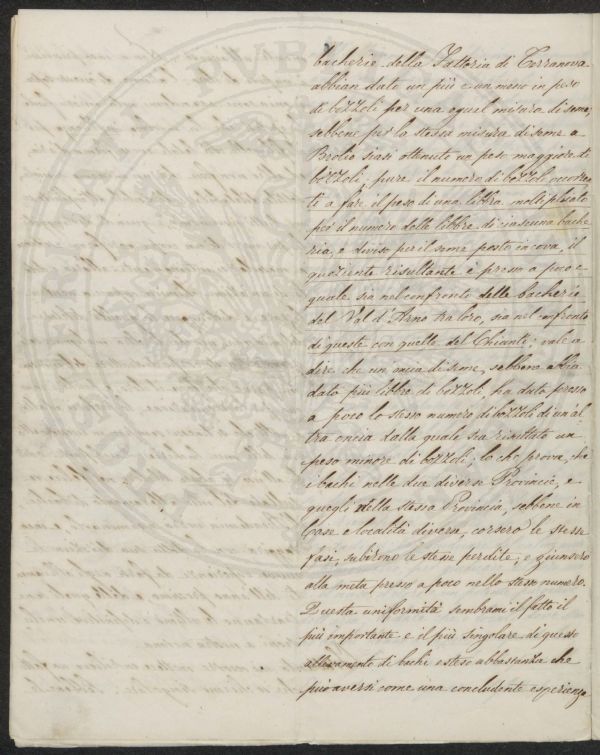 bacherie della Fattoria di Terranova
abbian dato un più e un meno in peso
di bozzoli per una egual misura di seme,
sebbene per la stessa misura di seme a
Brolio siasi ottenuto un peso maggiore di
bozzoli, pure il numero di bozzoli occorren
ti a fare il peso di una libbra moltiplicato
per il numero delle libbre di ciascuna bache
ria, e diviso per il seme posto in cova, il
quoziente risultante è presso a poco e
guale sia nel confronto delle bacherie
del Val d'Arno tra loro, sia nel confronto
di queste con quelle del Chianti; vale a
dire che un'oncia di seme, sebbene abbia
dato più libbre di bozzoli, ha dato presso
a poco lo stesso numero di bozzoli di un al
tra oncia dalla quale sia risultato un
peso minore di bozzoli; lo che prova, che
i bachi nelle due diverse Provincie, e
quegli della stessa Provincia, sebbene in
Case e località diverse, corsero le stesse
fasi, subirono le stesse perdite, e giunsero
alla meta presso a poco nello stesso numero.
Questa uniformità sembrami il fatto il
più importante e il più singolare di questo
allevamento di bachi esteso abbastanza che
può aversi come una concludente esperienza